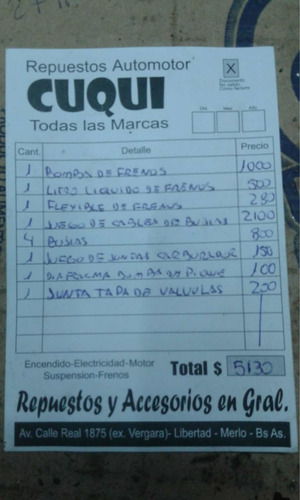 Repuestos Automotor
CUQUI
Todas las Marcas
X
Documento
No valido
Como factura
Dia Mes Año
Cant. Detalle Precio
1 BOMBA DE FRENOS 1000
1 LITRO LIQUIDO DE FRENOS 500
1 FLEXIBLE DE FRENOS 280
1 JUEGO DE CABLES DE BUJIAS 2100
4 BUJIAS 800
1 JUEGO DE JUNTAS CARBURADOR 150
1 DIAFRAGMA BOMBA DE PIQUE 100
1 JUNTA TAPA DE VALVULAS 200
Encendido-Electricidad-Motor
Suspension-Frenos
Total $ 5130
Repuestos y Accesorios en Gral.
Av. Calle Real 1875 (ex. Vergara)- Libertad - Merlo - Bs As.